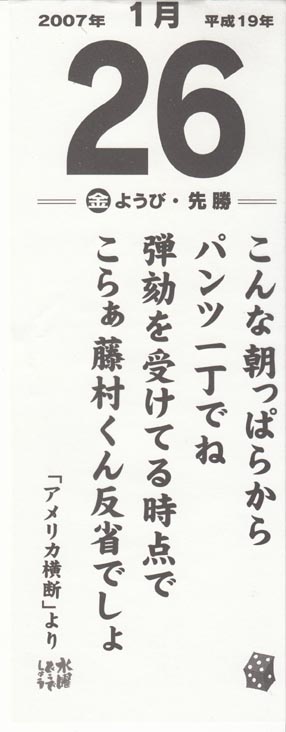 2007年 1月 平成19年
26
金ようび・先勝
こんな朝っぱらから
パンツ一丁でね
弾劾を受けてる時点で
こらぁ藤村くん反省でしょ
「アメリカ横断」より
水曜
どうで
しょう